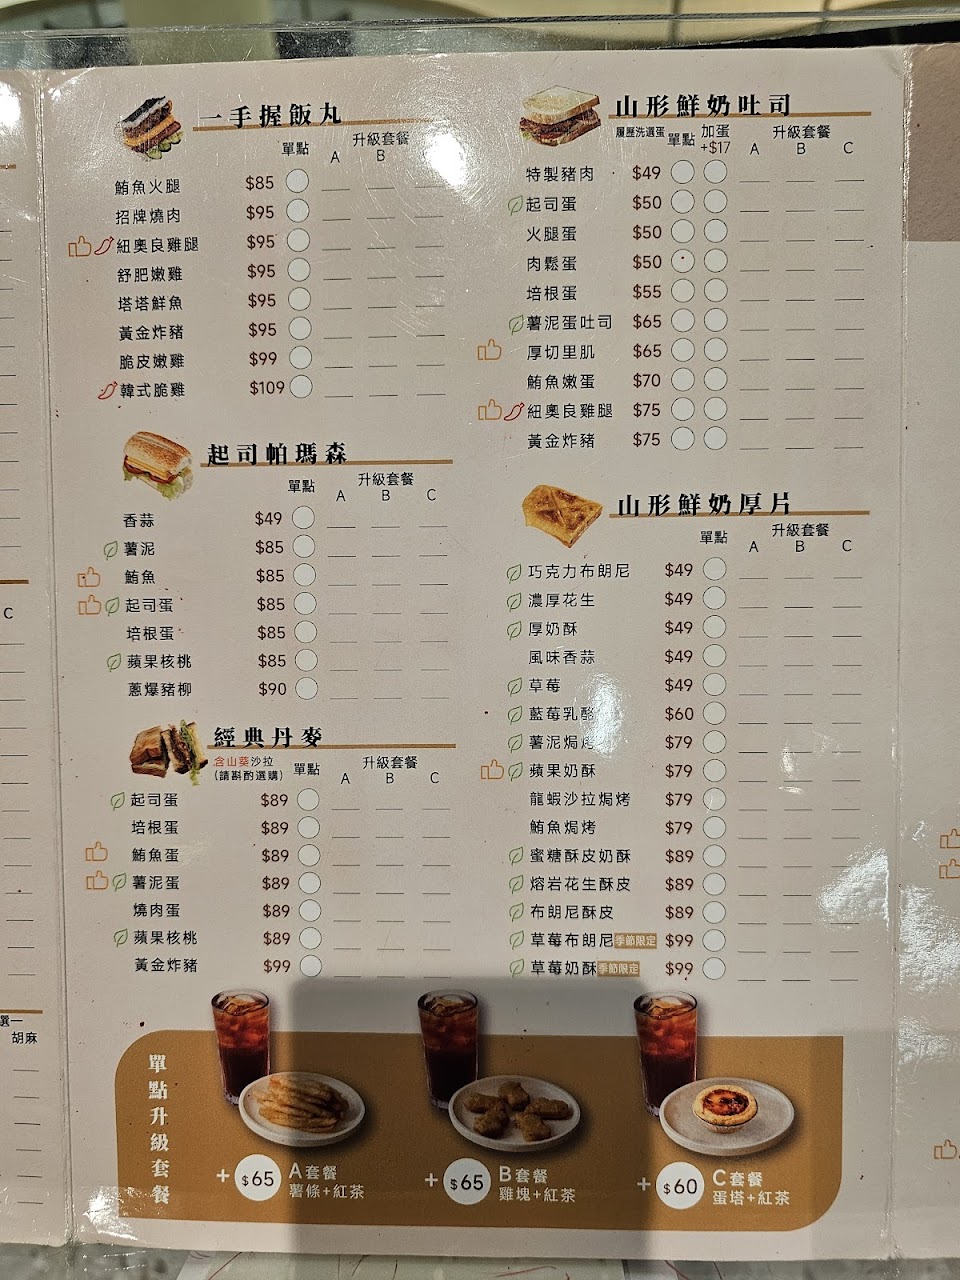 一手握飯丸
單點 升級套餐
A B
鮪魚火腿 $85
招牌燒肉 $95
紐奧良雞腿 $95
舒肥嫩雞 $95
塔塔鮮魚 $95
黃金炸豬 $95
脆皮嫩雞 $99
韓式脆雞 $109
起司帕瑪森
單點 升級套餐
A B C
香蒜 $49
薯泥 $85
鮪魚 $85
起司蛋 $85
培根蛋 $85
蘋果核桃 $85
蔥爆豬柳 $90
經典丹麥
含山葵沙拉
(請斟酌選購)
單點 升級套餐
A B C
起司蛋 $89
培根蛋 $89
鮪魚蛋 $89
薯泥蛋 $89
燒肉蛋 $89
蘋果核桃 $89
黃金炸豬 $99
山形鮮奶吐司
履歷洗選蛋 單點 加蛋 +$17 升級套餐
A B C
特製豬肉 $49
起司蛋 $50
火腿蛋 $50
肉鬆蛋 $50
培根蛋 $55
薯泥蛋吐司 $65
厚切里肌 $65
鮪魚嫩蛋 $70
紐奧良雞腿 $75
黃金炸豬 $75
山形鮮奶厚片
單點 升級套餐
A B C
巧克力布朗尼 $49
濃厚花生 $49
厚奶酥 $49
風味香蒜 $49
草莓 $49
藍莓乳酪 $60
薯泥焗烤 $79
蘋果奶酥 $79
龍蝦沙拉焗烤 $79
鮪魚焗烤 $79
蜜糖酥皮奶酥 $89
熔岩花生酥皮 $89
布朗尼酥皮 $89
草莓布朗尼 季節限定 $99
草莓奶酥 季節限定 $99
單點升級套餐
+ $65 A套餐
薯條+紅茶
+ $65 B套餐
雞塊+紅茶
+ $60 C套餐
蛋塔+紅茶
C
選一
胡麻